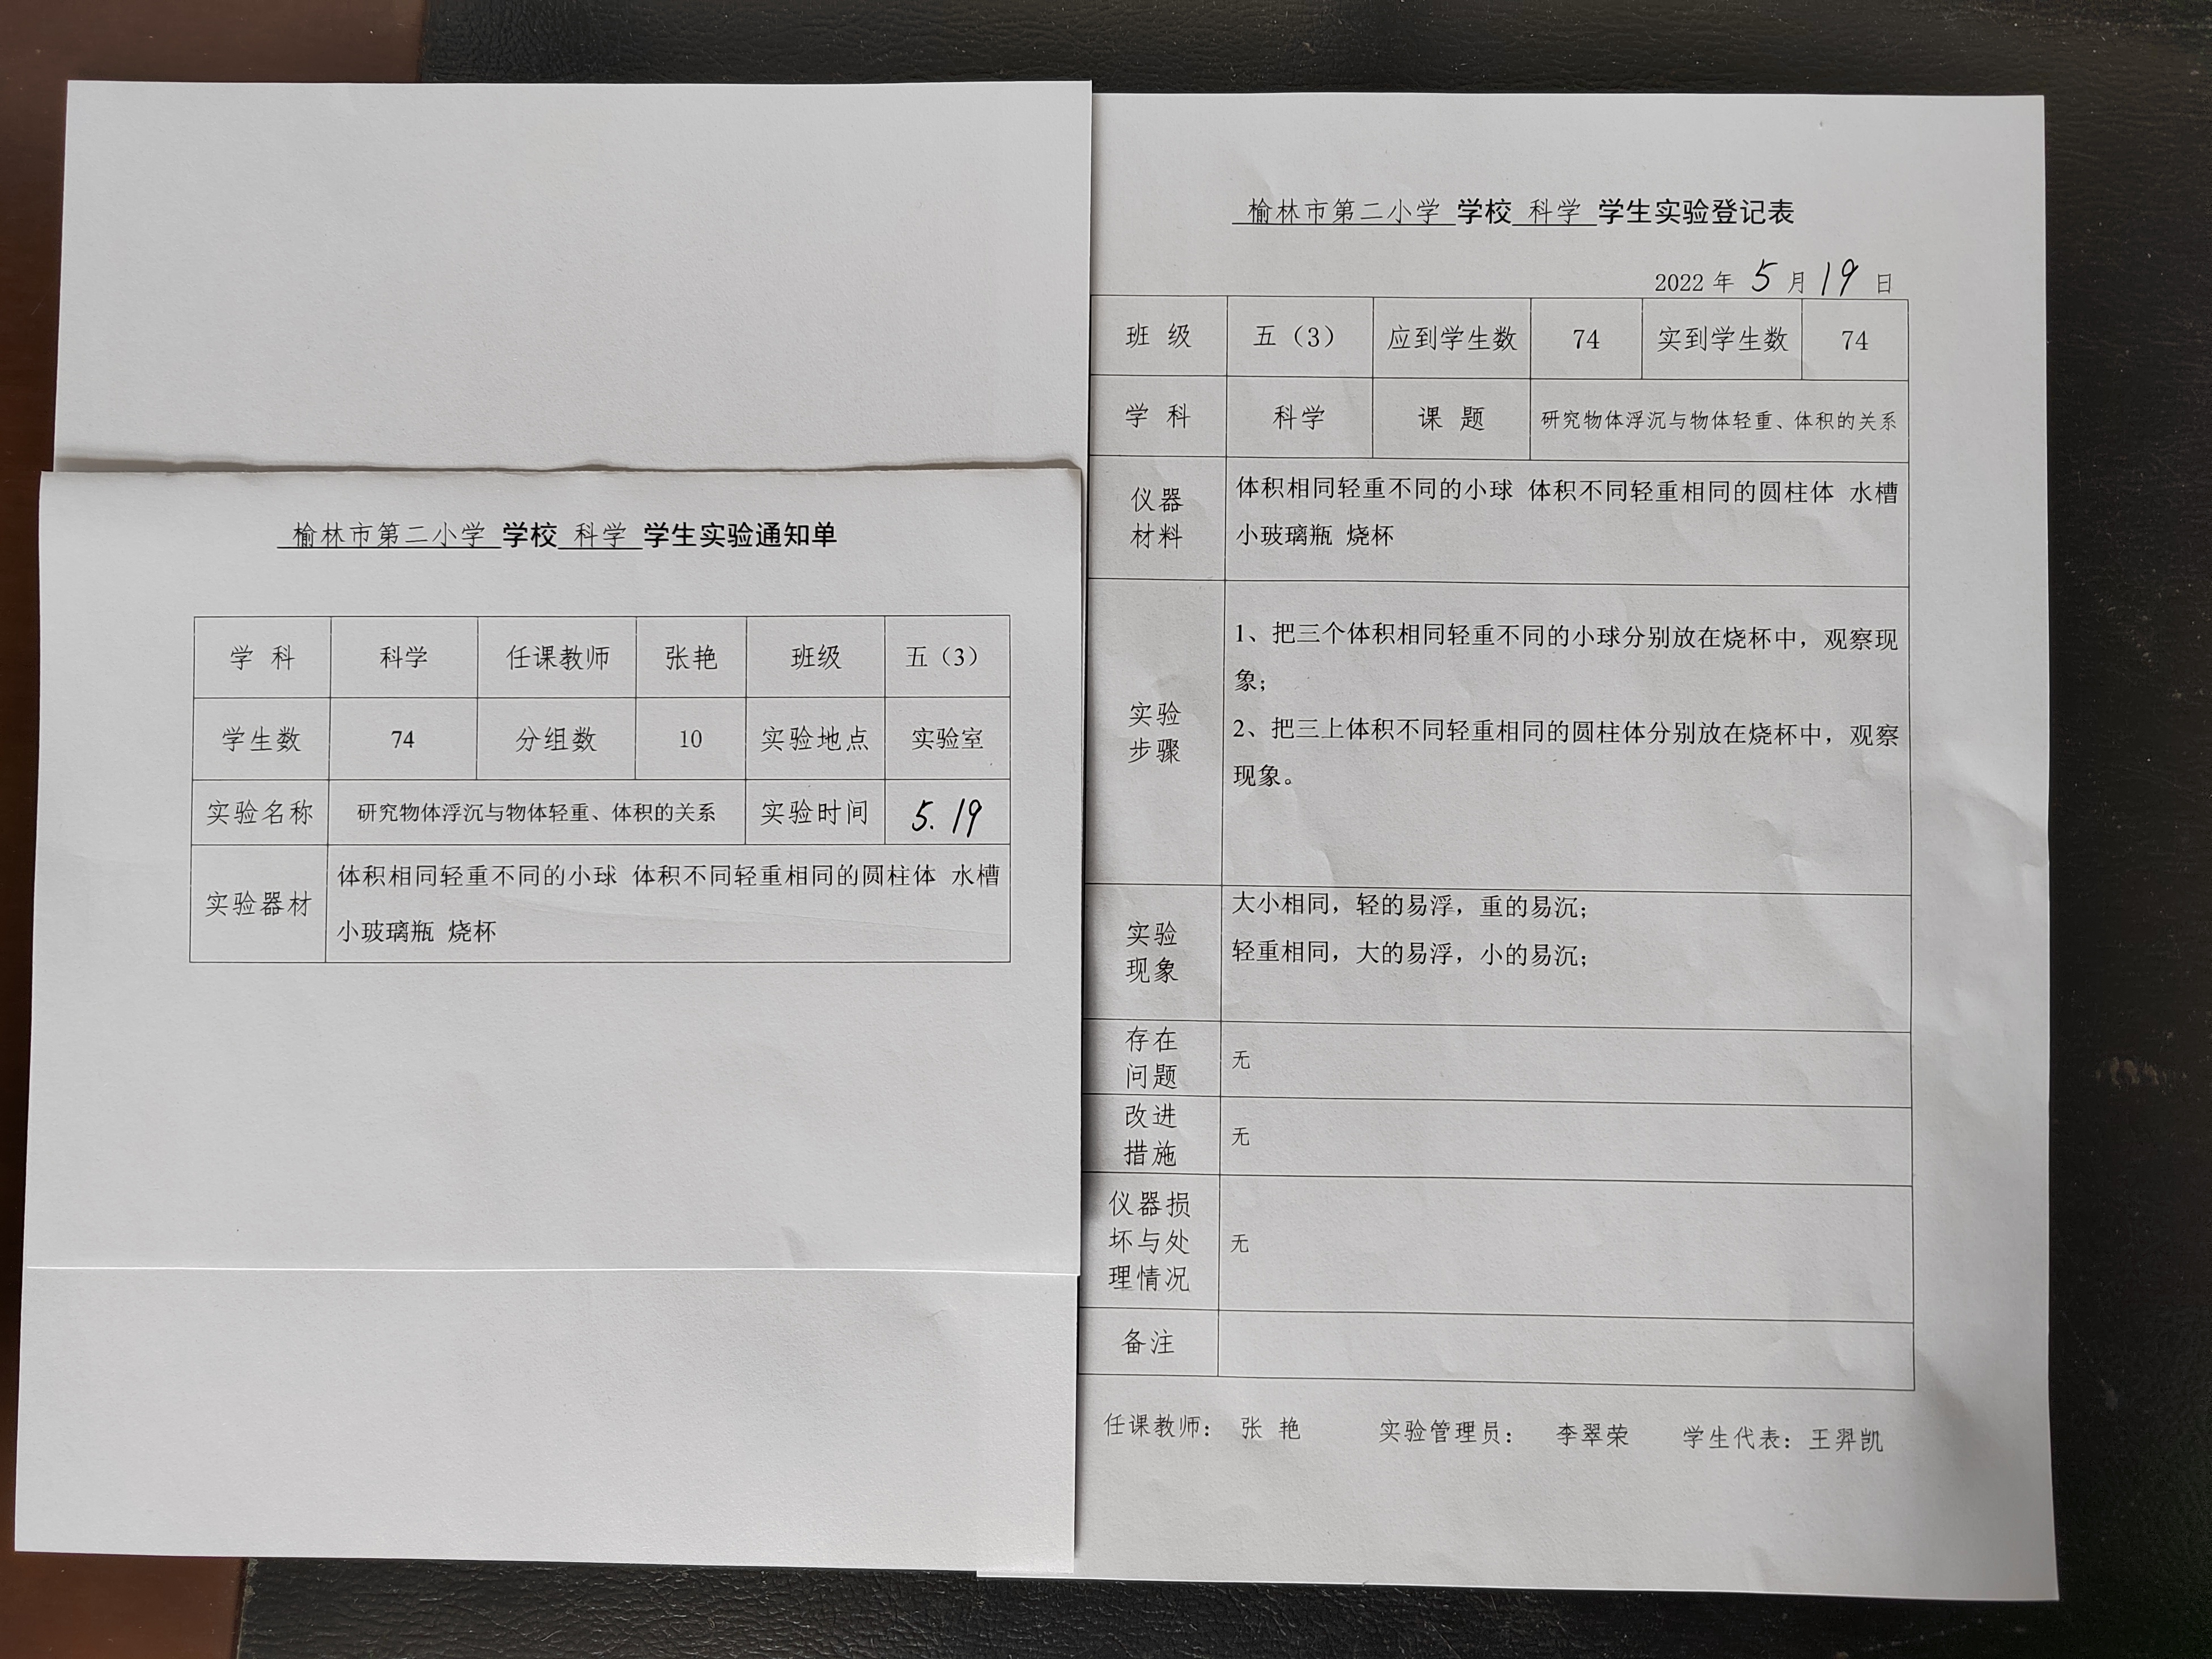 榆林市第二小学 学校 科学 学生实验通知单
学 科 科学 任课教师 张艳 班级 五（3）
学生数 74 分组数 10 实验地点 实验室
实验名称 研究物体浮沉与物体轻重、体积的关系 实验时间 5.19
实验器材 体积相同轻重不同的小球 体积不同轻重相同的圆柱体 水槽
小玻璃瓶 烧杯
榆林市第二小学 学校 科学 学生实验登记表
2022 年 5 月 19 日
班 级 五（3） 应到学生数 74 实到学生数 74
学 科 科学 课 题 研究物体浮沉与物体轻重、体积的关系
仪器
材料
体积相同轻重不同的小球 体积不同轻重相同的圆柱体 水槽
小玻璃瓶 烧杯
实验
步骤
1、把三个体积相同轻重不同的小球分别放在烧杯中，观察现
象；
2、把三上体积不同轻重相同的圆柱体分别放在烧杯中，观察
现象。
实验
现象
大小相同，轻的易浮，重的易沉；
轻重相同，大的易浮，小的易沉；
存在
问题
无
改进
措施
无
仪器损
坏与处
理情况
无
备注
任课教师： 张 艳 实验管理员： 李翠荣 学生代表：王羿凯